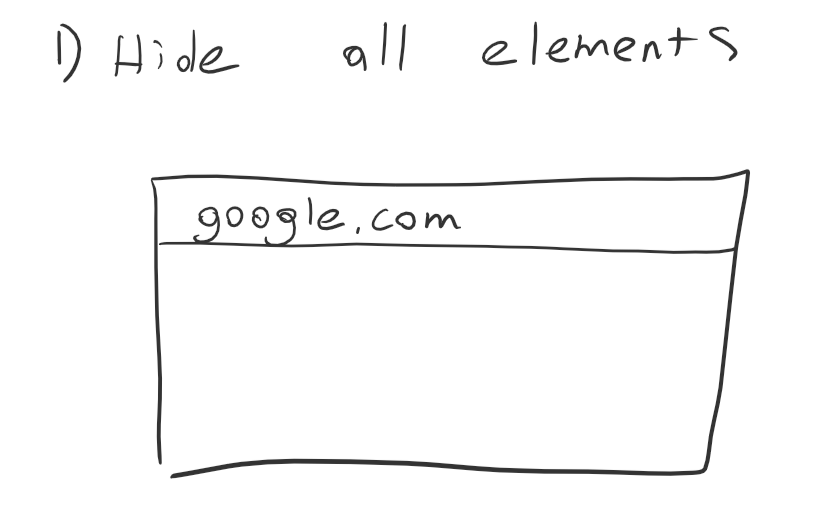 1) Hide all elements
google.com